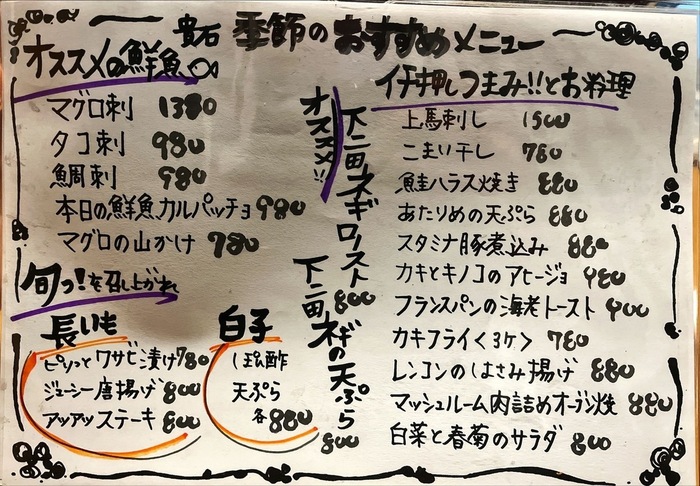 貴石 季節のおすすめメニュー
オススメの鮮魚
マグロ刺 1380
タコ刺 980
鯛刺 980
本日の鮮魚カルパッチョ 980
マグロの山かけ 780
旬っ!を召し上がれ
長いも
ピリっとワサビ漬け 780
ジューシー唐揚げ 800
アッアッステーキ 800
白子
ぽん酢
天ぷら
各880
オススメ!!
下仁田ネギロースト 800
下仁田ネギの天ぷら 800
イチ押しつまみ!!とお料理
上馬刺し 1500
こまい干し 780
鮭ハラス焼き 880
あたりめの天ぷら 880
スタミナ豚煮込み 880
カキとキノコのアヒージョ 980
フランスパンの海老トースト 900
カキフライ<3ケ> 780
レンコンのはさみ揚げ 880
マッシュルーム肉詰めオーブン焼 880
白菜と春菊のサラダ 800